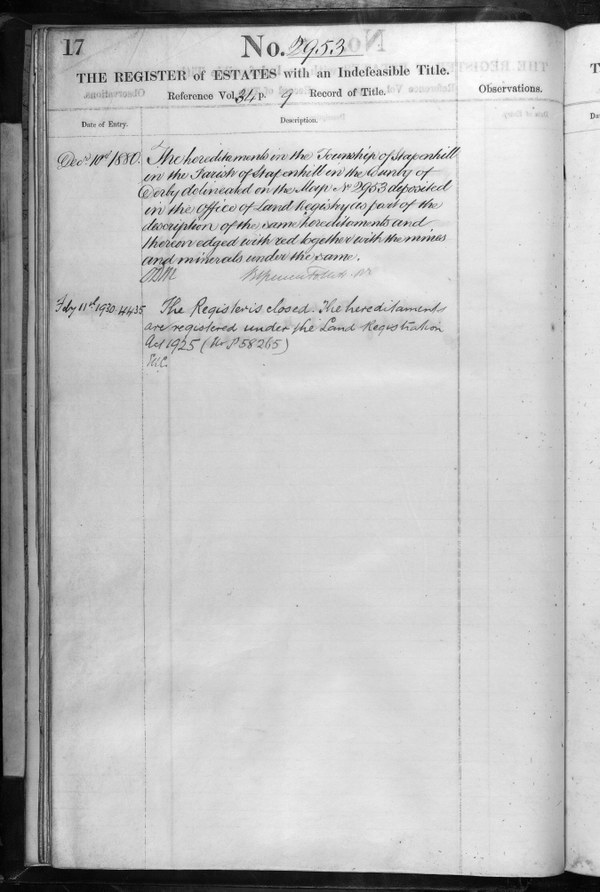 17
No. 2953
THE REGISTER of ESTATES with an Indefeasible Title.
Reference Vol. 34 p. 9 Record of Title.
Observations.
Date of Entry.
Description.
Decr. 10th 1880.
The hereditaments in the Township of Stapenhill
in the Parish of Stapenhill in the County of
Derby delineated on the Map No 2953 deposited
in the Office of Land Registry as part of the
description of the same hereditaments and
thereon edged with red together with the mines
and minerals under the same.
Feby 11th 1930. 4435
The Register is closed. The hereditaments
are registered under the Land Registration
Act 1925 (No P58265)